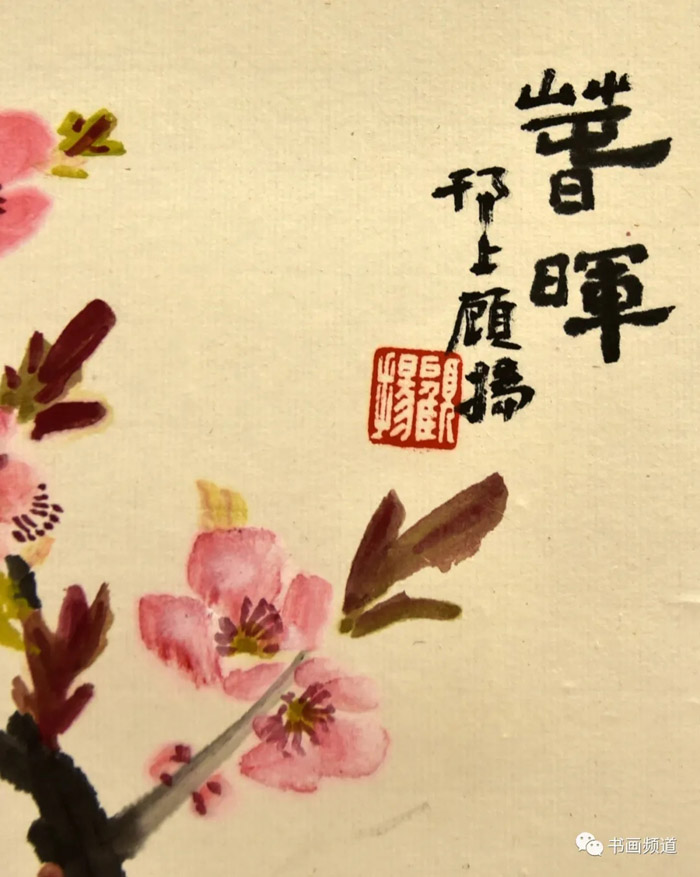 萅暉
邗上顧揚
顧揚
书画频道